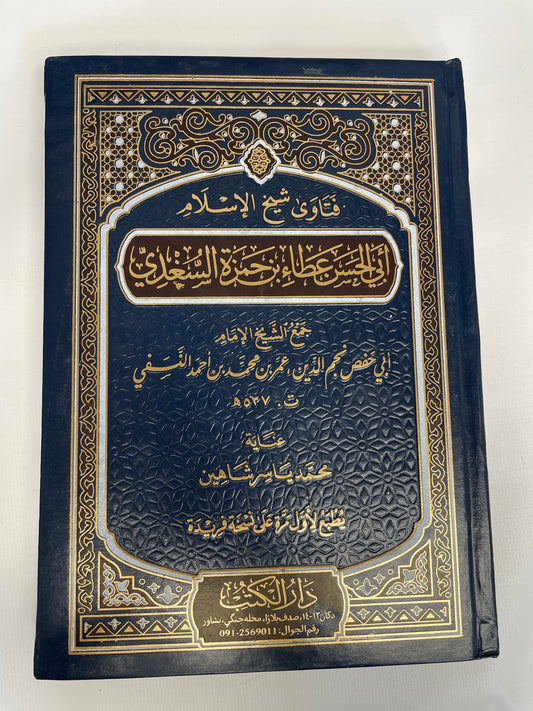 فتاوى شيخ الإسلام
أبي الحسن عطاء بن حمزة السغدي
جمع الشيخ الإمام
أبي حفص نجم الدين عمر بن محمد بن أحمد النسفي
ت. ٥٣٧هـ
عناية
محمد ياسر شاهين
يطبع لأول مرة على نسخة فريدة
دار الكتب
دكان ١٣-١٤، صدف بلازا، محله جنگي، بشاور
رقم الجوال: 2569011-091